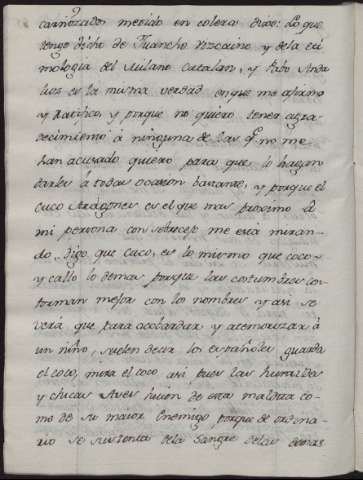 carniçados metido en colera dixo: Lo que
tengo dicho de Juancho Vizcaino, y dela eti
mologia del Milano Catalan, y Pabo Anda
luz es la misma verdad en que me afirmo
y Ratifico, y porque no quiero tener agra-
decimiento à ninguna de las q.e no me
han acusado quiero para que lo hagan
darles à todas ocasion bastante, y porque el
cuco Aragones es el que mas proximo à
mi persona con sobrecejo me està miran-
do, digo que cuco, es lo mismo que coco-
y callo lo demas porque las costumbres con
forman mejor con los nombres y asi se
verà que para acobardar y atemorizar à
un niño, suelen decir los españoles guarda
el coco, mira el coco asi pues las humildes
y chicas Aves huien de esta maldita co-
mo de su maior Enemigo, porque de ordina-
rio se sustenta dela Sangre delas demas